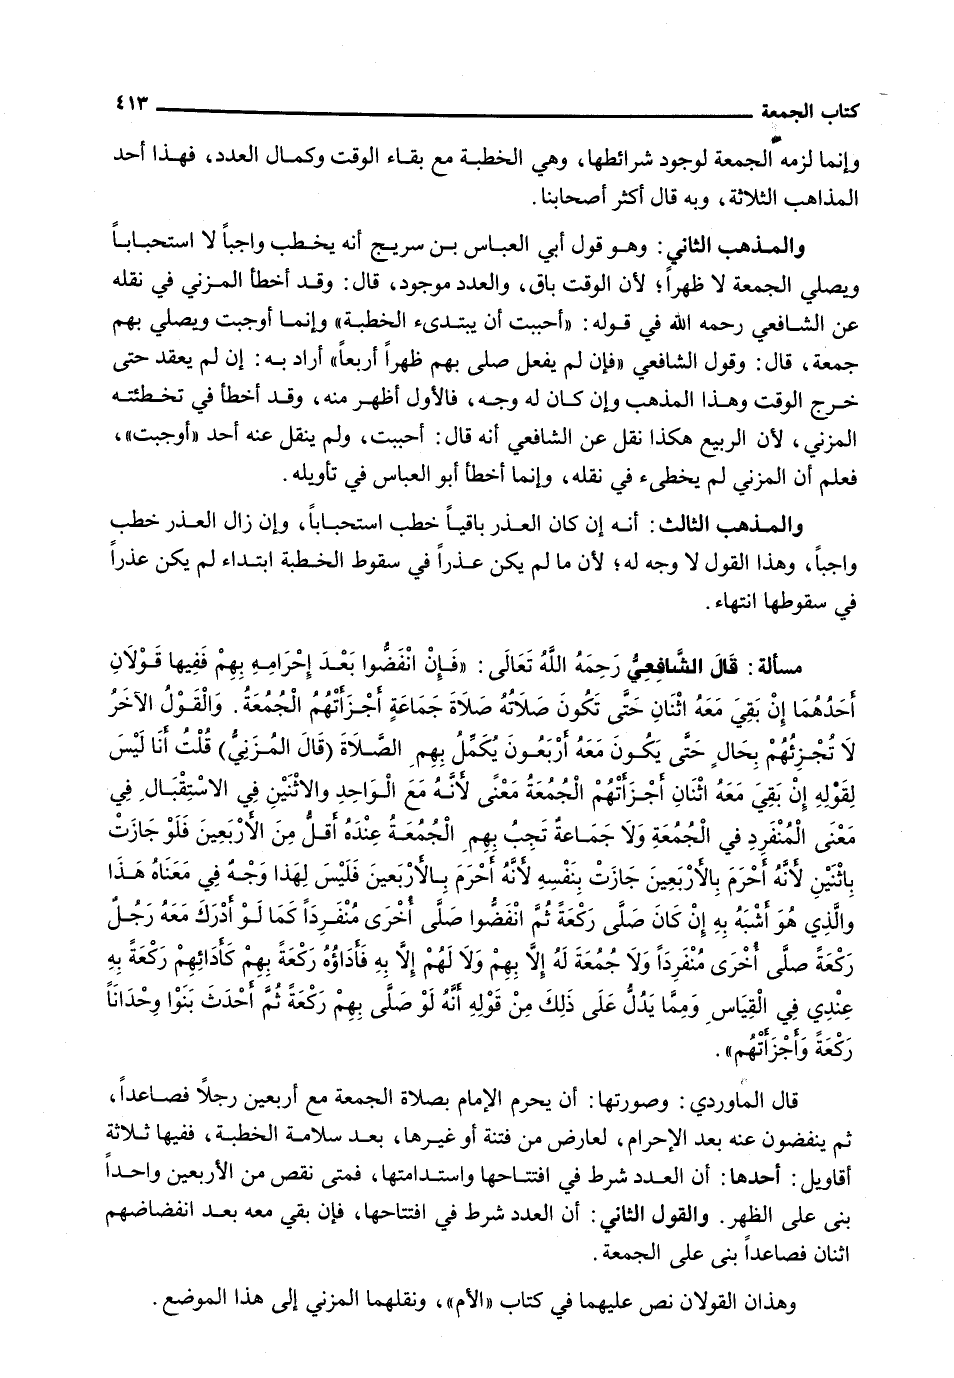 كتاب الجمعة ٤١٣
وإنما لزمه الجمعة لوجود شرائطها، وهي الخطبة مع بقاء الوقت وكمال العدد، فهذا أحد
المذاهب الثلاثة، وبه قال أكثر أصحابنا.
والمذهب الثاني: وهو قول أبي العباس بن سريج أنه يخطب واجباً لا استحباباً
ويصلي الجمعة لا ظهراً؛ لأن الوقت باق، والعدد موجود، قال: وقد أخطأ المزني في نقله
عن الشافعي رحمه الله في قوله: «أحببت أن يبتدىء الخطبة» وإنما أوجبت ويصلي بهم
جمعة، قال: وقول الشافعي «فإن لم يفعل صلى بهم ظهراً أربعاً» أراد به: إن لم يعقد حتى
خرج الوقت وهذا المذهب وإن كان له وجه، فالأول أظهر منه، وقد أخطأ في تخطئته
المزني، لأن الربيع هكذا نقل عن الشافعي أنه قال: أحببت، ولم ينقل عنه أحد «أوجبت»،
فعلم أن المزني لم يخطىء في نقله، وإنما أخطأ أبو العباس في تأويله.
والمذهب الثالث: أنه إن كان العذر باقياً خطب استحباباً، وإن زال العذر خطب
واجباً، وهذا القول لا وجه له؛ لأن ما لم يكن عذراً في سقوط الخطبة ابتداء لم يكن عذراً
في سقوطها انتهاء.
مسألة: قَالَ الشَّافِعِيُّ رَحِمَهُ اللَّهُ تَعَالَى: «فَإِنْ انْفَضُّوا بَعْدَ إِحْرَامِهِ بِهِمْ فَفِيها قَوْلَانِ
أَحَدُهُمَا إِنْ بَقِيَ مَعَهُ اثْنَانِ حَتَّى تَكُونَ صَلَاتُهُ صَلَاةَ جَمَاعَةٍ أَجْزَأَتْهُمُ الْجُمُعَةُ. وَالْقَوْلُ الآخَرُ
لَا تُجْزِئُهُمْ بِحَالٍ حَتَّى يَكُونَ مَعَهُ أَرْبَعُونَ يُكَمِّلُ بِهِمِ الصَّلَاةَ (قَالَ المُزَنِيُّ) قُلْتُ أَنَا لَيْسَ
لِقَوْلِهِ إِنْ بَقِيَ مَعَهُ اثْنَانِ أَجْزَأَتْهُمْ الْجُمُعَةُ مَعْنًى لَأَنَّهُ مَعَ الْوَاحِدِ والاثْنَيْنِ فِي الاسْتِقْبَالِ فِي
مَعْنَى الْمُنْفَرِدِ في الْجُمُعَةِ وَلَا جَمَاعةٌ تَجِبُ بِهِمِ الْجُمُعَةُ عِنْدَهُ أَقلُّ مِنَ الأَرْبَعِينَ فَلَوْ جَازَتْ
بِاثْنَيْنِ لَأَنَّهُ أَحْرَمَ بِالأَرْبَعِينَ جَازَتْ بِنَفْسِهِ لَأَنَّهُ أَحْرَمَ بِالأَرْبَعِينَ فَلَيْسَ لِهَذا وَجْهٌ فِي مَعَنَاهُ هَذَا
والَّذِي هُوَ أَشْبَهُ بِهِ إِنْ كَانَ صَلَّى رَكْعَةً ثُمَّ انْفَضُّوا صَلَّى أُخْرَى مُنْفَرِداً كَمَا لَوْ أَدْرَكَ مَعَهُ رَجُلٌ
رَكْعَةً صلَّى أُخْرَى مُنْفَرِداً وَلَا جُمُعَةَ لَهُ إِلَّا بِهِمْ وَلَا لَهُمْ إِلَّا بِهِ فَأَدَاؤُهُ رَكْعَةً بِهِمْ كَأَدَائِهِمْ رَكْعَةً بِهِ
عِنْدِي فِي الْقِيَاسِ وَمِمَّا يَدُلُّ عَلَى ذَلِكَ مِنْ قَوْلِهِ أَنَّهُ لَوْ صَلَّى بِهِمْ رَكْعَةً ثُمَّ أَحْدَثَ بَنَوْا وِحْدَانَاً
رَكْعَةً وَأَجْزَأَتْهُم».
قال الماوردي: وصورتها: أن يحرم الإمام بصلاة الجمعة مع أربعين رجلًا فصاعداً،
ثم ينفضون عنه بعد الإحرام، لعارض من فتنة أو غيرها، بعد سلامة الخطبة، ففيها ثلاثة
أقاويل: أحدها: أن العدد شرط في افتتاحها واستدامتها، فمتى نقص من الأربعين واحداً
بنى على الظهر. والقول الثاني: أن العدد شرط في افتتاحها، فإن بقي معه بعد انفضاضهم
اثنان فصاعداً بنى على الجمعة.
وهذان القولان نص عليهما في كتاب «الأم»، ونقلهما المزني إلى هذا الموضع.